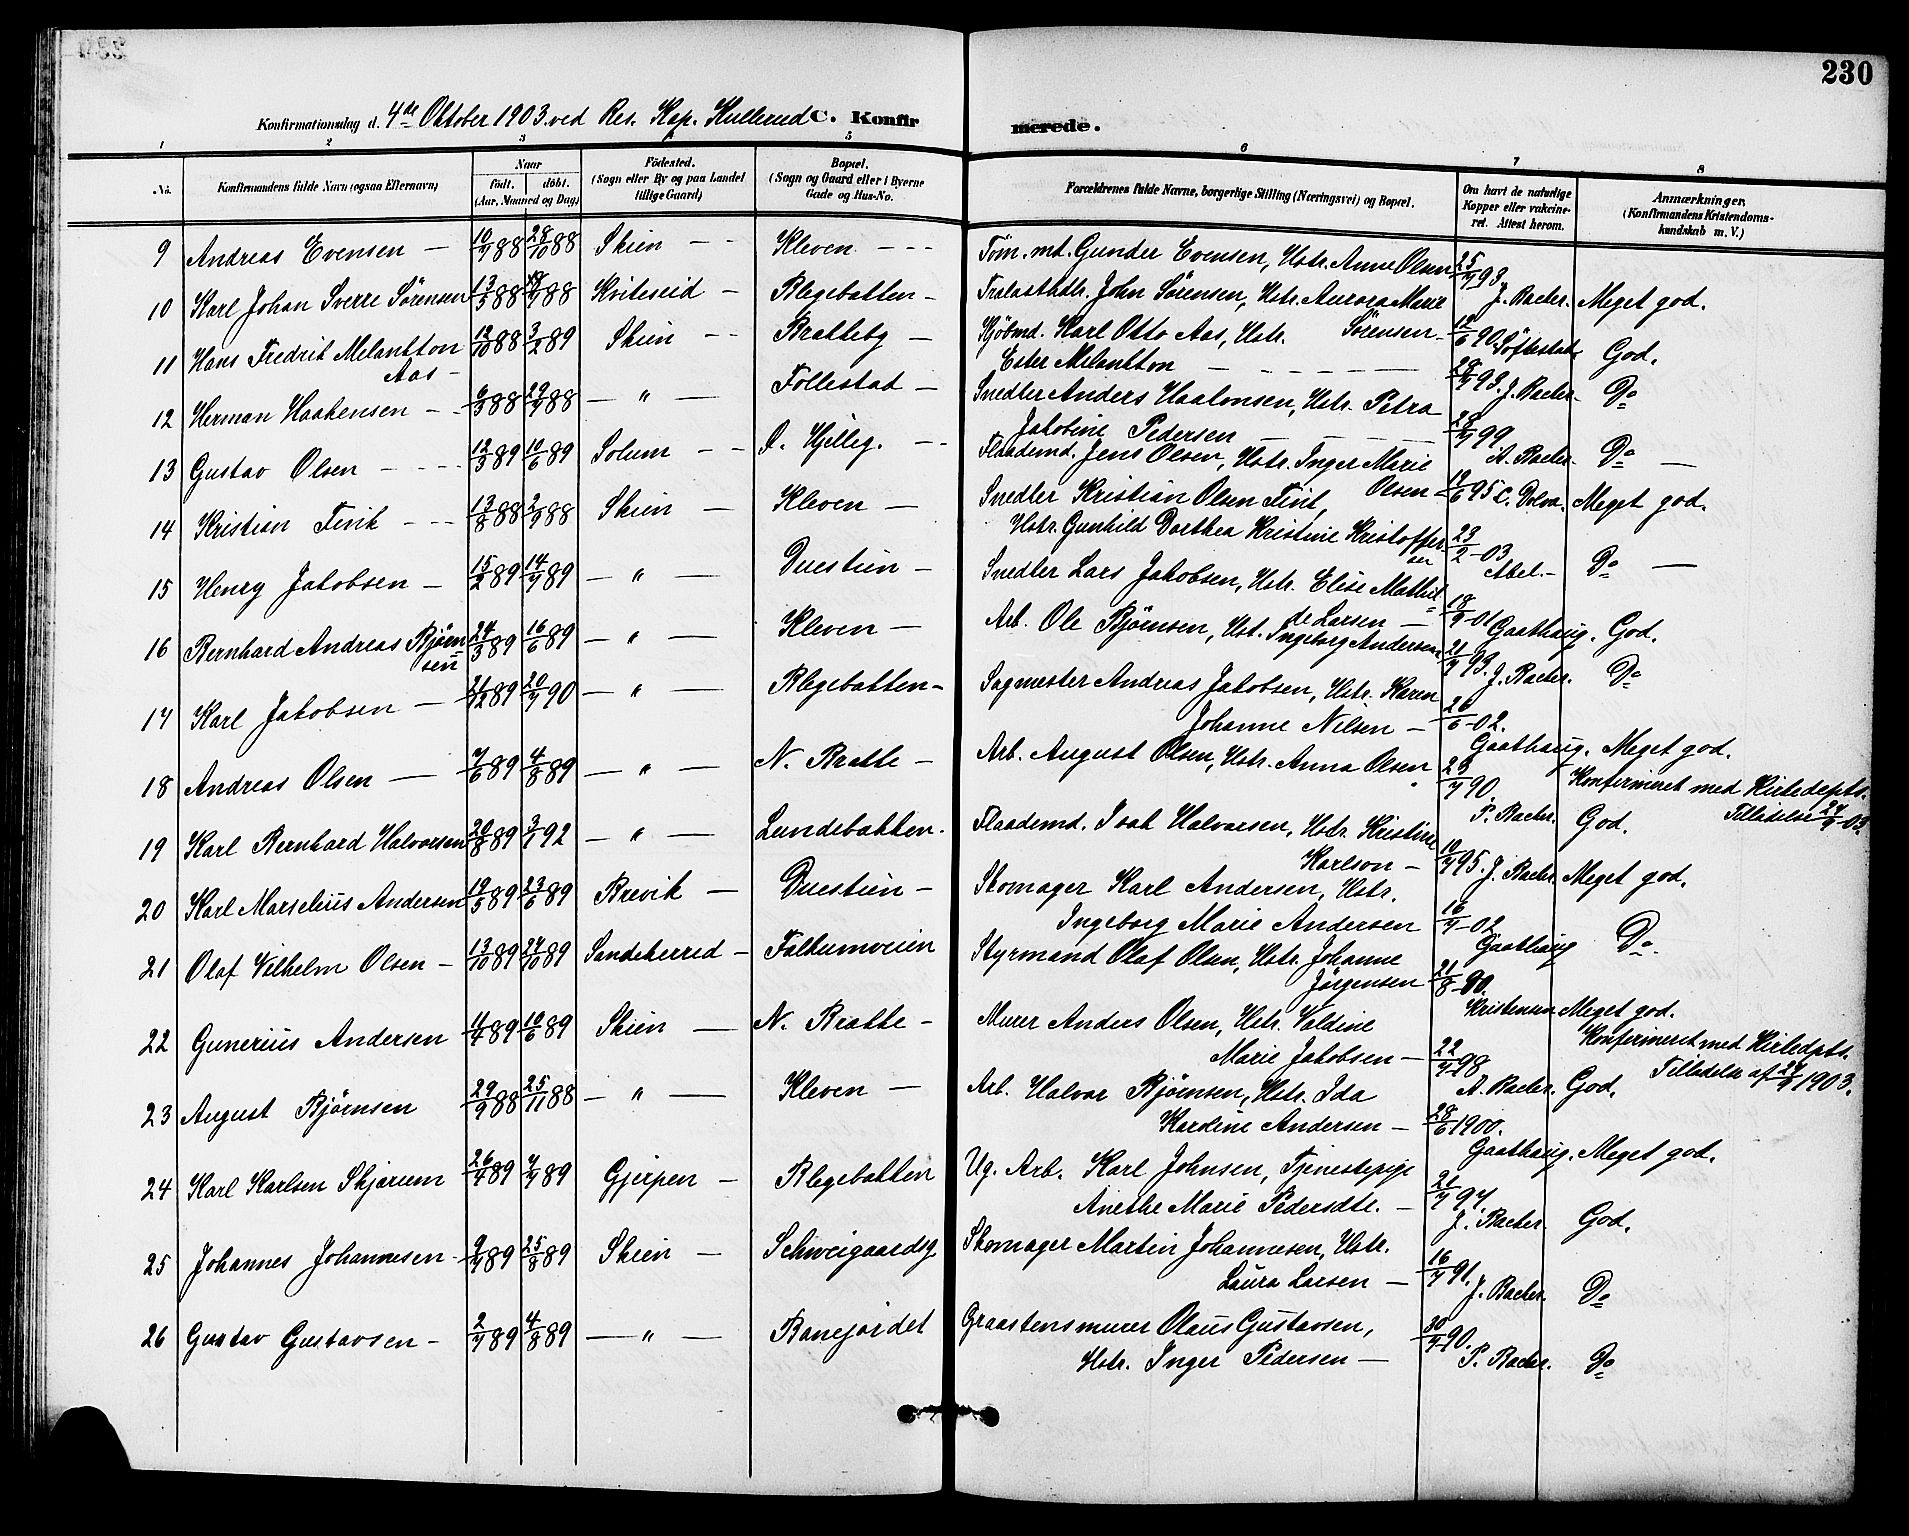 230
Konfirmationsdag d. 4de Oktober 1903 ved Res. Kap. Hullerud C. Konfirmerede.
1 2 3 4 5 6 7 8
No. Konfirmandens fulde Navn (ogsaa Efternavn) Naar født. døbt. (Aar, Maaned og Dag) Fødested. (Sogn eller By og paa Landet tillige Gaard) Bopæl. (Sogn og Gaard eller i Byerne Gade og Hus-No. Forældrenes fulde Navne, borgerlige Stilling (Næringsvei) og Bopæl. Om havt de naturlige Kopper eller vakcineret. Attest herom. Anmærkninger. (Konfirmandens Kristendomskundskab m. V.)
9 Andreas Evensen — 10/9 88 28/10 88 Skien - - Kleven - - - Tøm. md. Gunder Evensen, Hstr. Anne Olsen 25/9 93 J. Backer. Meget god.
10 Karl Johan Sverre Sørensen 13/5 88 88 Kviteseid - Blegebakken - Trælasthdlr. John Sørensen, Hstr. Aurora Marie Sørensen - 12/6 90 Løftestad God.
11 Hans Fredrik Melantton Aas - 12/10 88 3/2 89 Skien - - Bratteby - Kjøbmd. Karl Otto Aas, Hstr. Ester Melantton - - - - - 28/9 93. J. Backer. Do
12 Herman Haakensen - - 6/3 88 29/4 88 — " — Follestad - Snedker Anders Haakonsen, Hstr. Petra Jakobine Pedersen - - - 28/9 99 A. Backer. Do —
13 Gustav Olsen - - - - 12/3 89 10/6 89 Solum - - S. Hjelleg. - - Flaademd. Jens Olsen, Hstr. Inger Marie Olsen - 12/6 95 C. Dolva. Meget god.
14 Kristian Fink - - - 13/8 88 2/9 88 Skien - Kleven - Snedker Kristian Olsen Fink, Hstr. Gunhild Dorthea Kristine Kristoffersen 23/2 - 03 Abel. - Do —
15 Henry Jakobsen - 15/2 89 14/4 89 — " — Duestien - Snedker Lars Jakobsen, Hstr. Elise Mathilde Larsen — 18/9 - 01 Gaathaug. God.
16 Bernhard Andreas Bjørnsen 24/3 89 16/6 89 — " — Kleven - Arb. Ole Bjørnsen, Hst. Ingeborg Andersen 21/9 93. J. Backer. Do
17 Karl Jakobsen — 21/12 89 20/4 90 — " — Blegebakken - Sagmester Andreas Jakobsen, Hstr. Karen Johanne Nilsen — 26/6 - 02. Gaathaug. Meget god.
18 Andreas Olsen — 7/6 89 4/8 89 — " — N. Bratte - Arb. August Olsen, Hstr. Anna Olsen 23/7 90 P. Backer. God. Konfirmeret med Kirkedepts. Tilladelse 24/9 - 03
19 Karl Bernhard Halvorsen 20/8 89 3/7 92 — " — Lundebakken. Flaademd. Isak Halvorsen, Hstr. Kristine Karlson — 10/9 95. J. Backer Meget god.
20 Karl Marselius Andersen 19/5 89 23/6 89 Brevik — Duestien - Skomager Karl Andersen, Hstr. Ingeborg Marie Andersen 16/9 - 02 Gaathaug Do.
21 Olaf Vilhelm Olsen - 13/10 89 27/10 89 Sandeherred - Falkumveien Styrmand Olaf Olsen, Hstr. Johanne Jørgensen 21/8 - 90. Kristensen Meget god.
22 Gunerius Andersen 4/4 89 10/6 89 Skien — N. Bratte - Murer Anders Olsen, Hstr. Valdine Marie Jakobsen — 22/9 98 A. Backer. God. Konfirmeret med Kirkedpts. Tilladelse af 24/9 1903.
23 August Bjørnsen 29/9 88 25/11 88 — " — Kleven — Arb. Halvor Bjørnsen, Hstr. Ida Karoline Andersen — 28/6 1900. Gaathaug. Meget god.
24 Karl Karlsen Skjerum 26/4 89 7/7 89 Gjerpen - Blegebakken Ug. Arb. Karl Johnsen, Tjenestepige Anethe Marie Pedersdtr. — 21/9 97. J. Backer. God.
25 Johannes Johannesen - 9/7 89 25/8 89 Skien — Schweigaardsg Skomager Martin Johannesen, Hstr. Laura Larsen — 16/7 91. J. Backer. Do
26 Gustav Gustavsen - 2/7 89 4/8 89 — " — Banejordet Graastensmurer Olaus Gustavsen, Hstr. Inger Pedersen — 30/7 90. P. Backer. Do